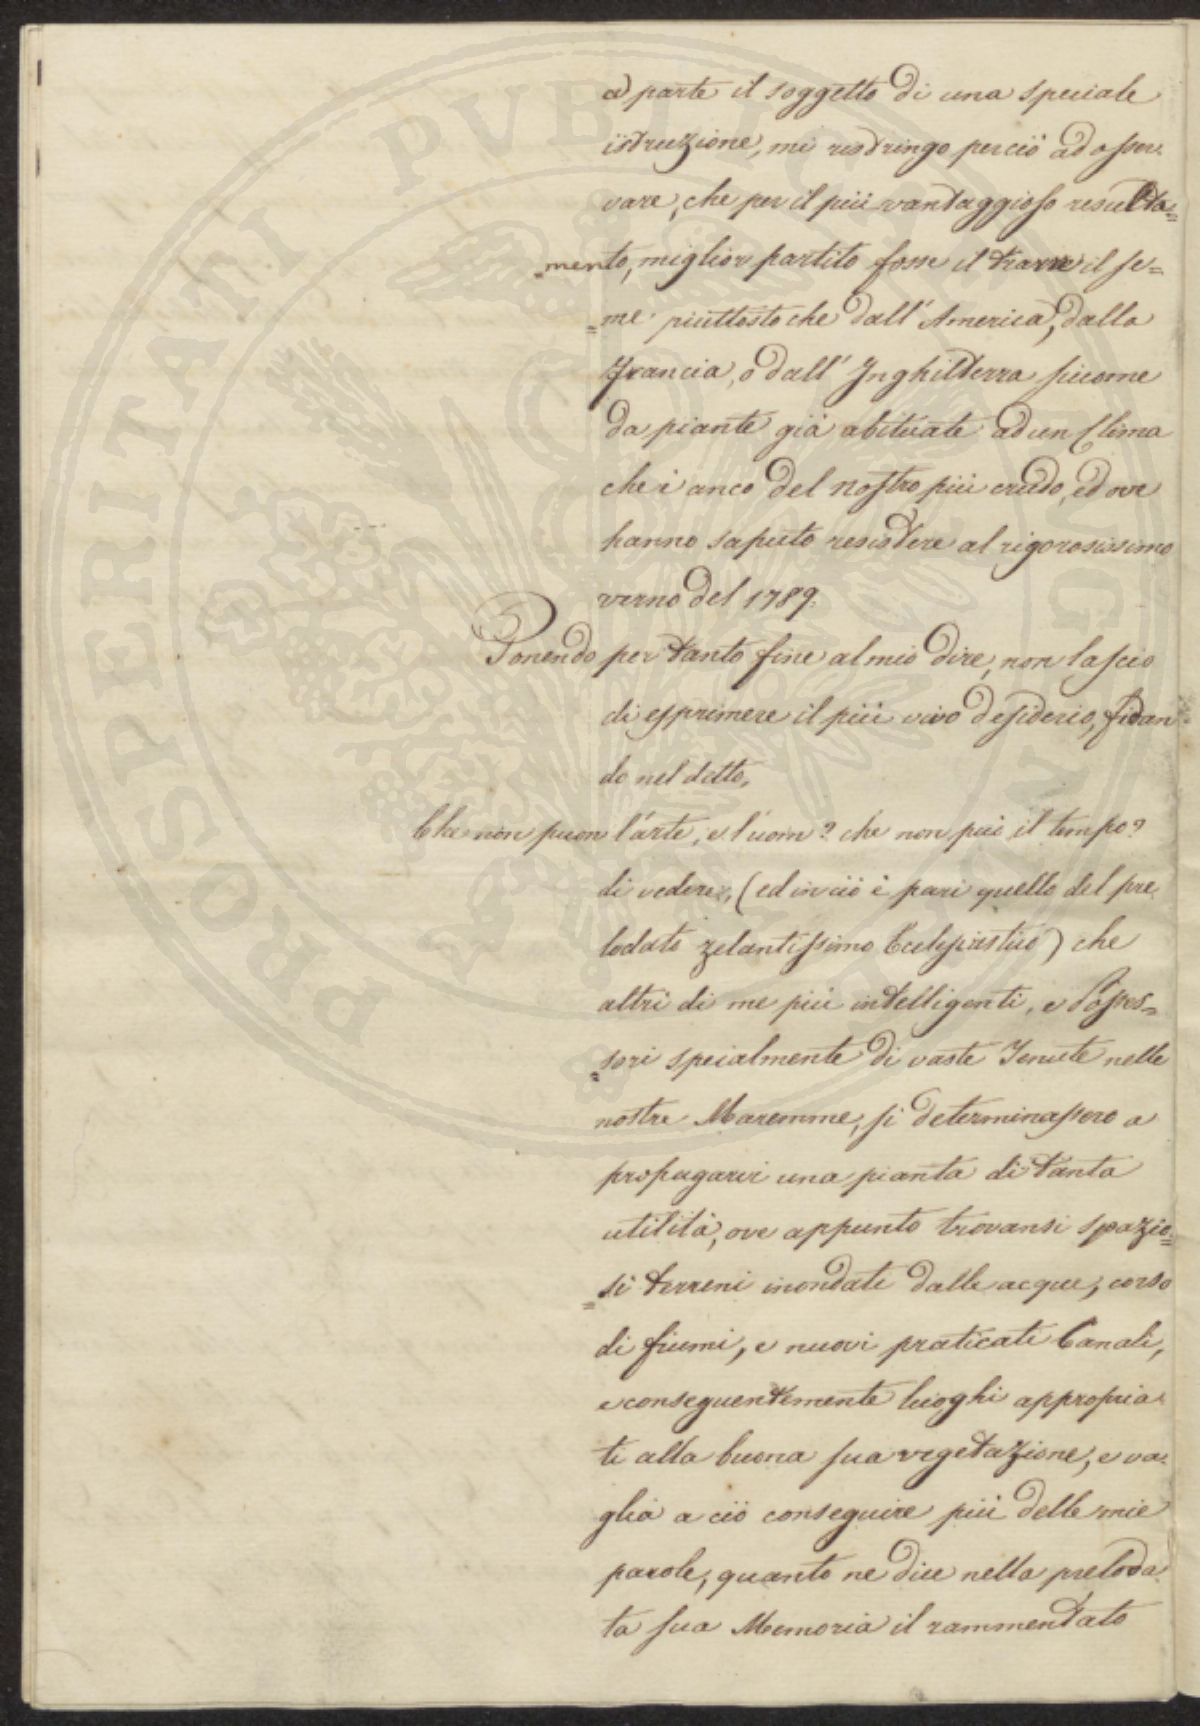 a parte il soggetto di una speciale
istruzione, mi ristringo perciò ad osser-
vare, che per il più vantaggioso resulta=
=mento, miglior partito fosse il trarre il se=
=me piuttosto che dall' America, dalla
Francia, o dall' Inghilterra siccome
da piante già abituate ad un Clima
che è anco del nostro più crudo, ed ove
hanno saputo resistere al rigorosissimo
verno del 1789.
Ponendo per tanto fine al mio dire, non lascio
di esprimere il più vivo desiderio, fidan
do nel detto,
Che non puon l'arte, e l'uom? che non può il tempo?
di vedere, (ed in ciò è pari quello del pre
lodato zelantissimo Ecclesiastico) che
altri di me più intelligenti, e Posses=
=sori specialmente di vaste Tenute nelle
nostre Maremme, si determinassero a
propagarvi una pianta di tanta
utilità, ove appunto trovansi spazio=
=si terreni inondati dalle acque, corso
di fiumi, e nuovi praticati Canali,
e conseguentemente luoghi appropria-
ti alla buona sua vegetazione, e va-
glia a ciò conseguire più delle mie
parole, quanto ne dice nella preloda
ta sua Memoria il rammentato
PROSPERITATI PUBLICAE AUGENDAE